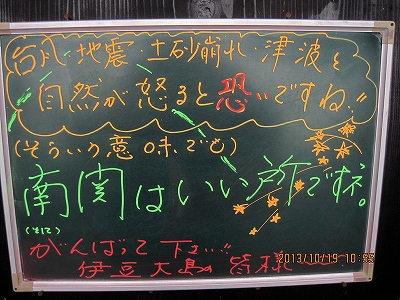 台風・地震・土砂崩れ・津波と
自然が怒ると恐いですね!!
(そういう意味でも)
南関はいい所です。
(そして)
がんばって下さい!!
伊豆大島の皆様
2013/10/19 10:22